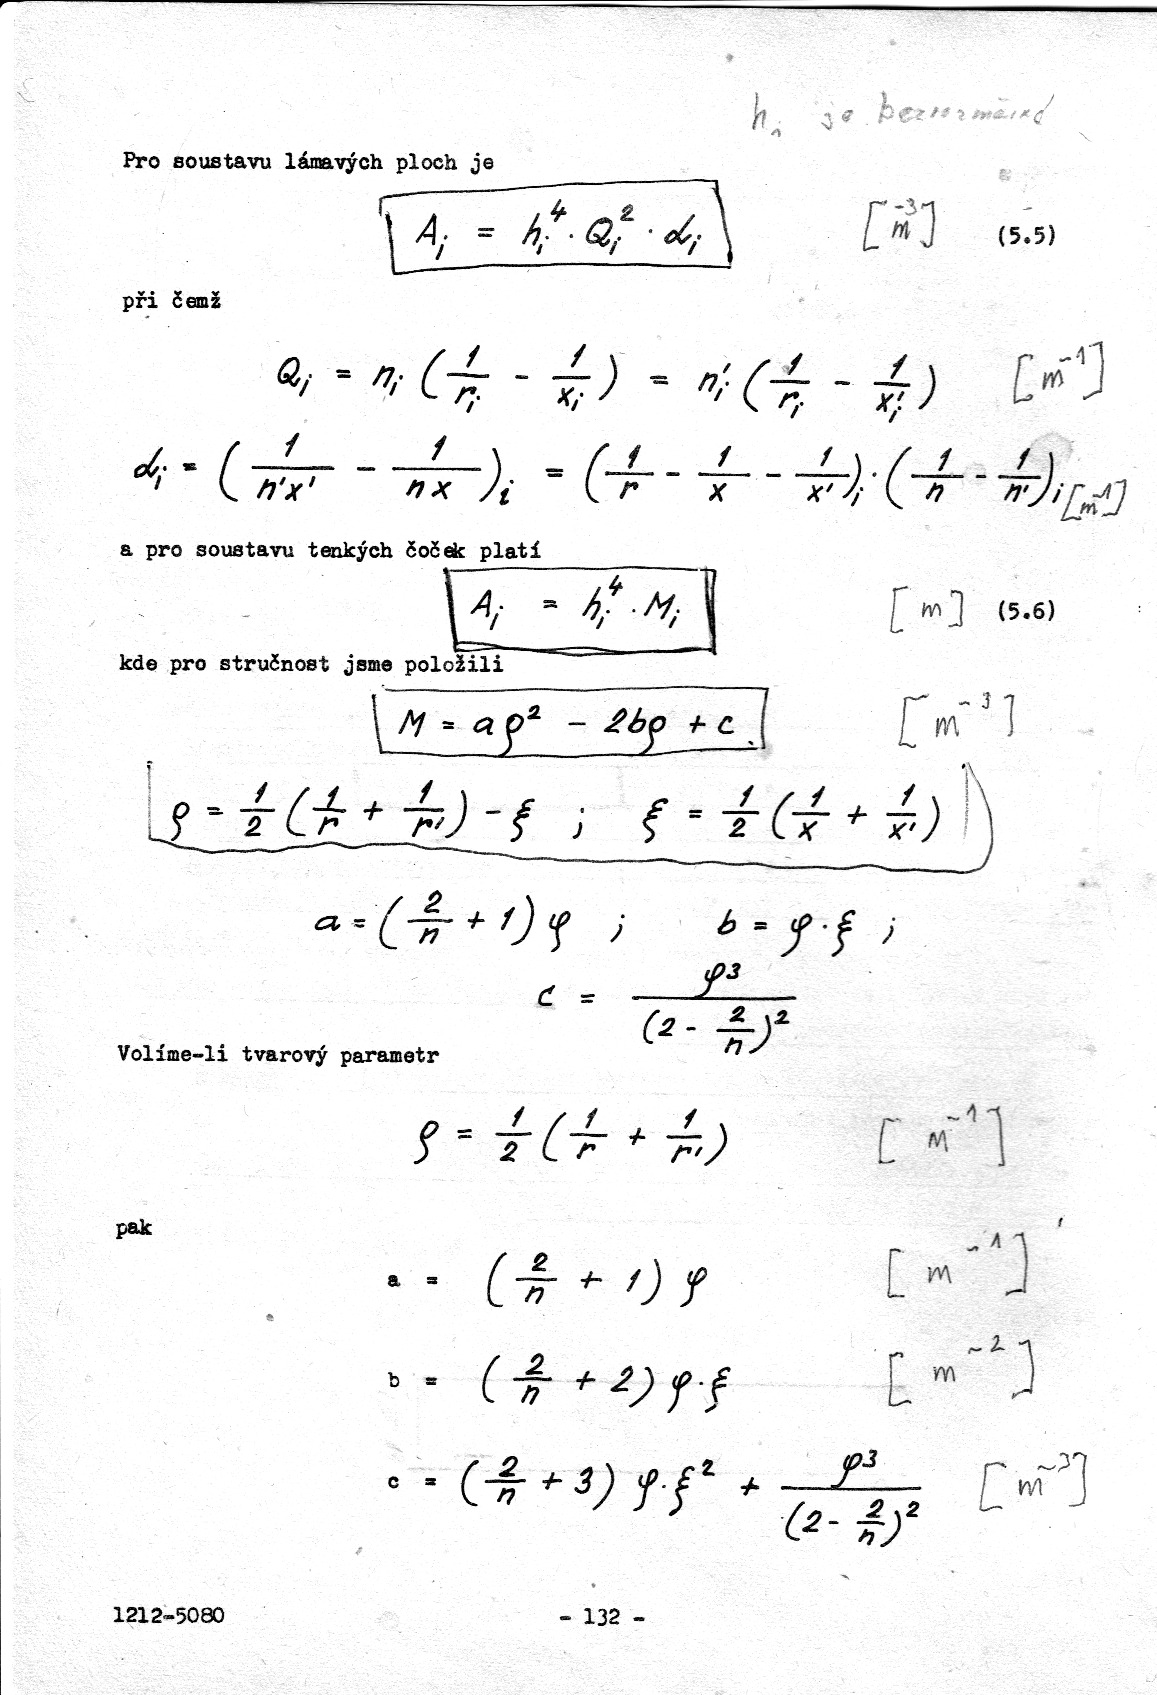 hᵢ je bezrozměrné
Pro soustavu lámavých ploch je
Aᵢ = hᵢ⁴ · Qᵢ² · αᵢ [m⁻³] (5.5)
při čemž
Qᵢ = nᵢ (1/rᵢ - 1/xᵢ) = nᵢ' (1/rᵢ - 1/xᵢ') [m⁻¹]
αᵢ = (1/n'x' - 1/nx)ᵢ = (1/r - 1/x - 1/x')ᵢ · (1/n - 1/n')ᵢ [m⁻¹]
a pro soustavu tenkých čoček platí
Aᵢ = hᵢ⁴ · Mᵢ [m] (5.6)
kde pro stručnost jsme položili
M = aρ² - 2bρ + c [m⁻³]
ρ = 1/2 (1/r + 1/r') - ξ ; ξ = 1/2 (1/x + 1/x')
a = (2/n + 1) φ ; b = φ · ξ ;
c = φ³/(2 - 2/n)²
Volíme-li tvarový parametr
ρ = 1/2 (1/r + 1/r') [m⁻¹]
pak
a = (2/n + 1) φ [m⁻¹]
b = (2/n + 2) φ · ξ [m⁻²]
c = (2/n + 3) φ · ξ² + φ³/(2 - 2/n)² [m⁻³]
1212-5080 - 132 -